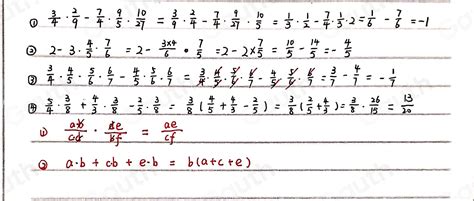 ① 3/4 · 2/9 - 7/4 · 9/5 · 10/27 = 3/9 · 2/4 - 7/4 · 9/27 · 10/5 = 1/3 · 1/2 - 7/4 · 1/3 · 2 = 1/6 - 7/6 = -1
② 2 - 3 · 4/5 · 7/6 = 2 - 3×4/6 · 7/5 = 2 - 2×7/5 = 10/5 - 14/5 = - 4/5
③ 3/4 · 4/5 · 5/6 · 6/7 - 4/5 · 5/6 · 6/7 = 3/4 · 4/5 · 5/6 · 6/7 - 4/5 · 5/6 · 6/7 = 3/7 - 4/7 = - 1/7
④ 5/4 · 3/8 + 4/3 · 3/8 - 2/5 · 3/8 = 3/8 (5/4 + 4/3 - 2/5) = 3/8 (2/5 + 4/3) = 3/8 · 26/15 = 13/20
① ab/cd · de/bf = ae/cf
② a·b + cb + e·b = b(a+c+e)